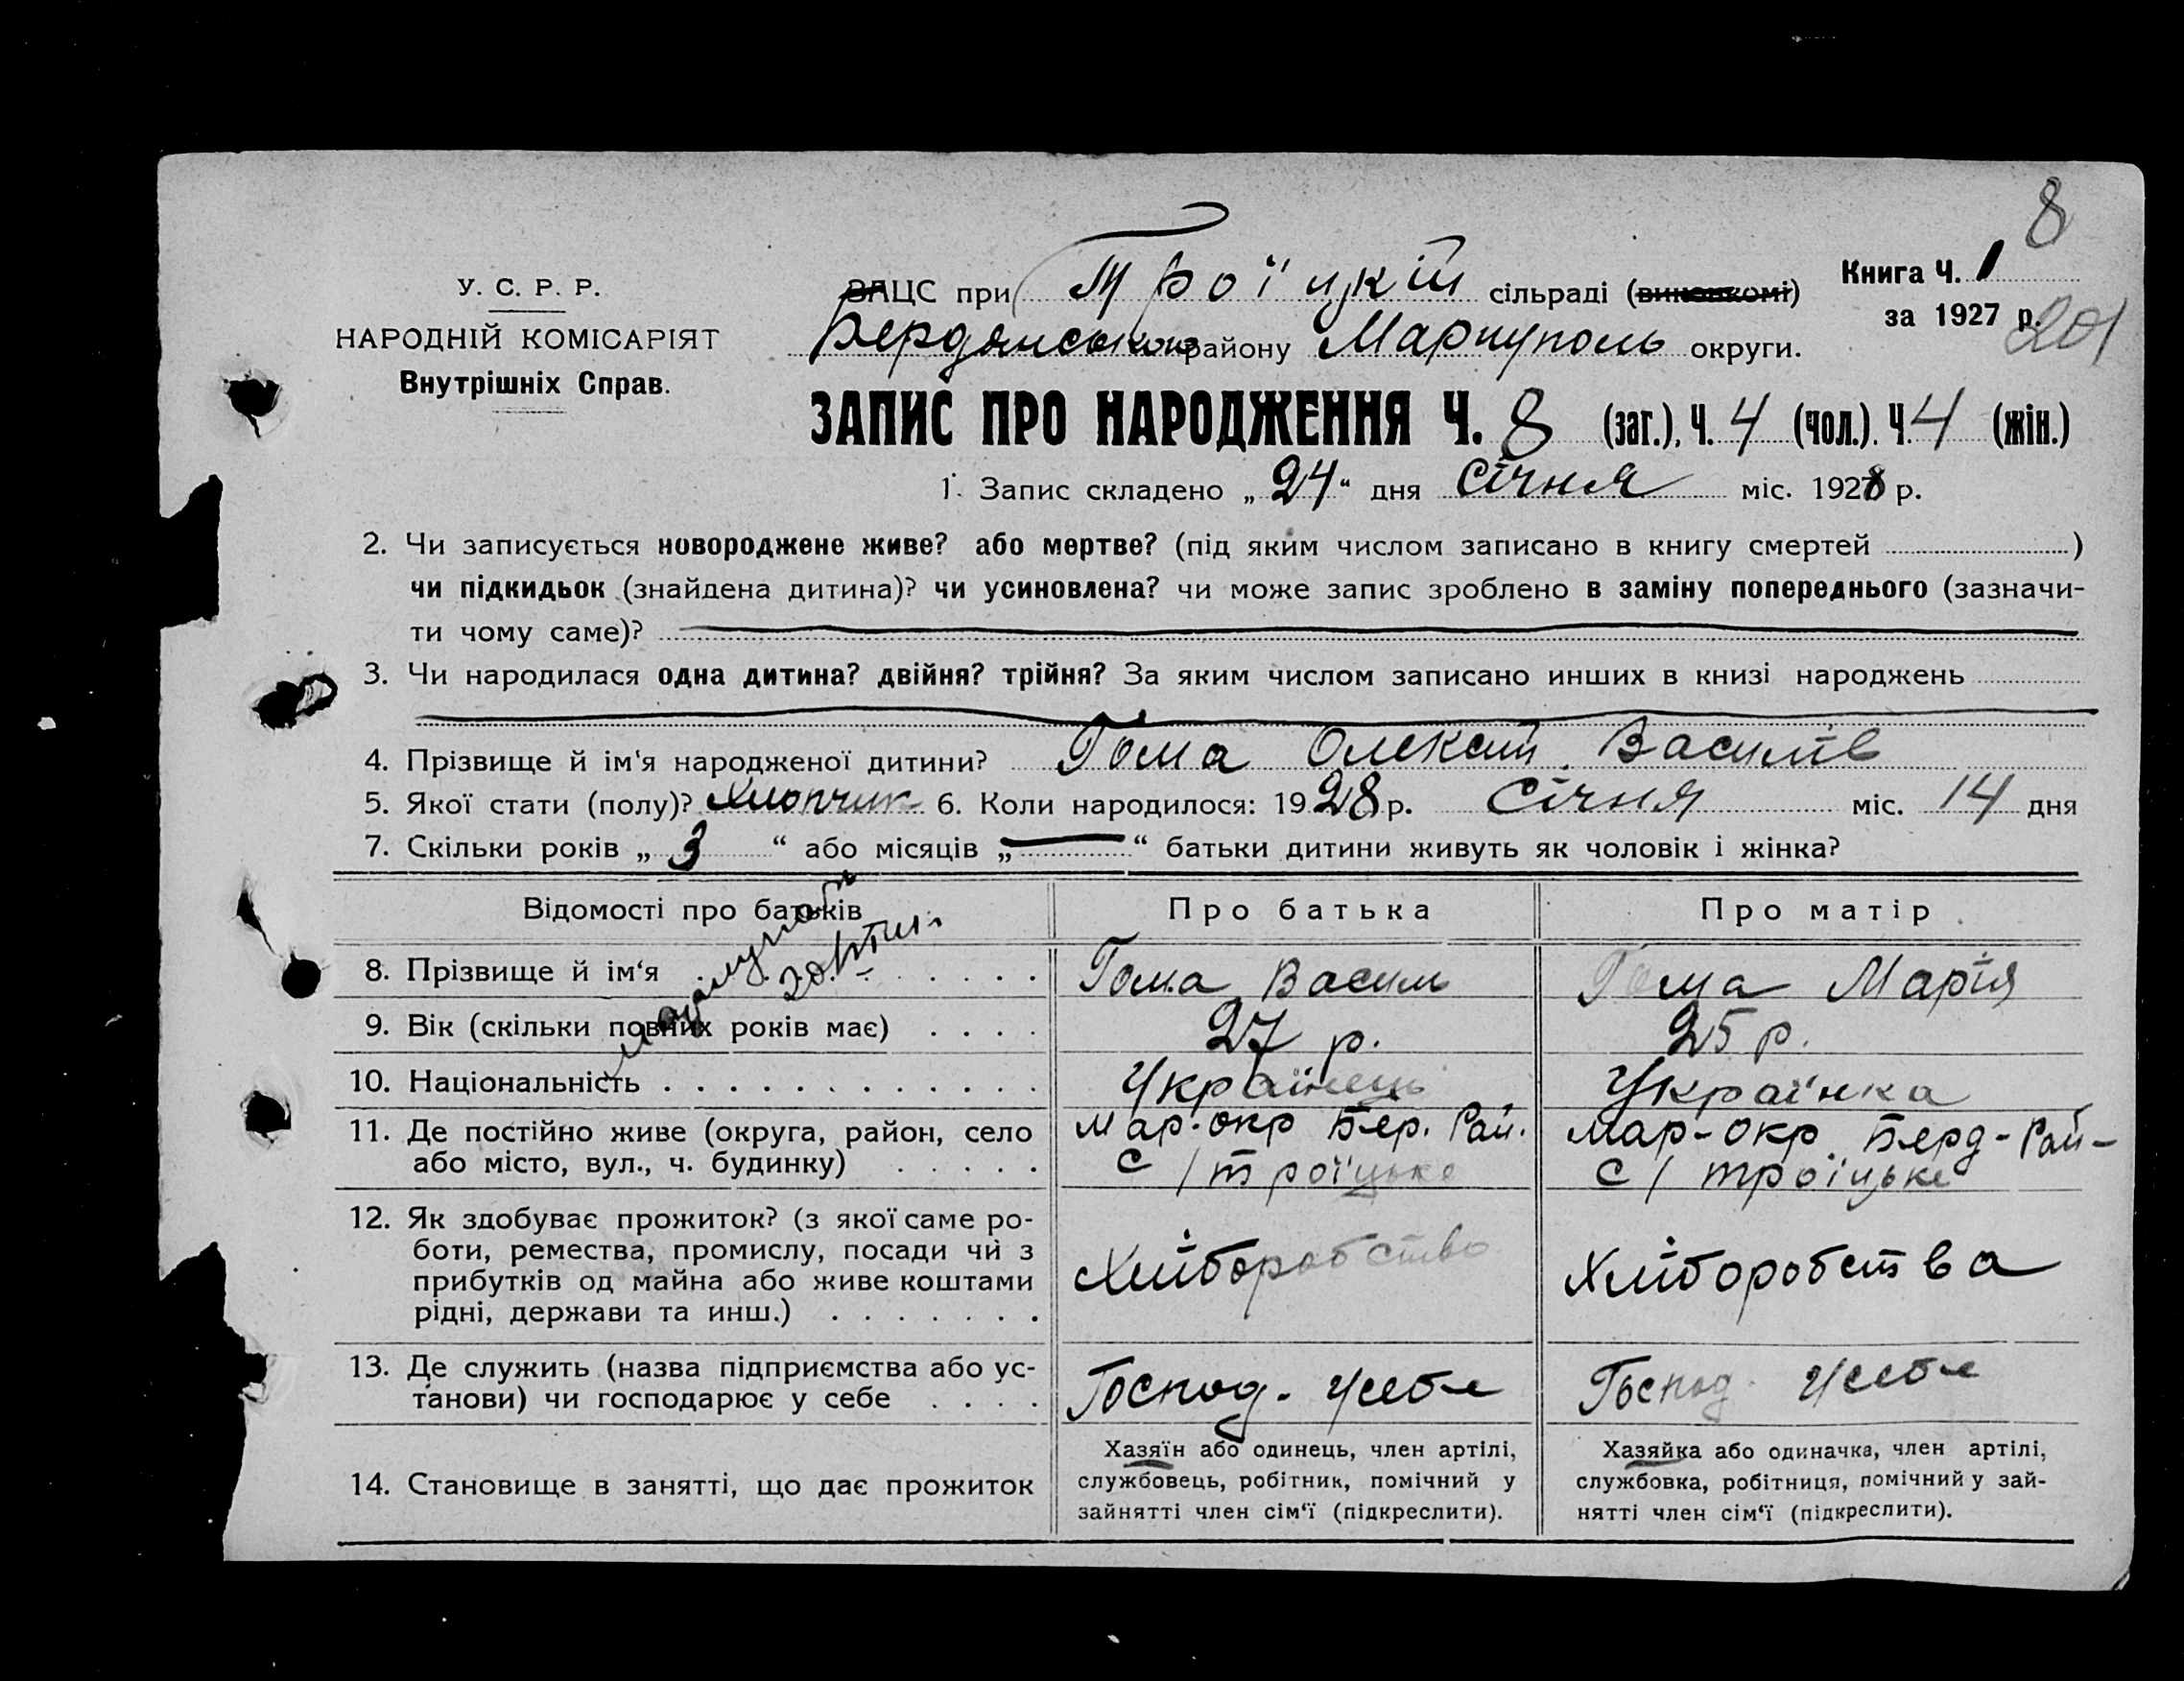 8
У. С. Р. Р.
НАРОДНІЙ КОМІСАРІЯТ
Внутрішніх Справ.
ЗАЦС при Троїцкій сільраді (виконкомі)
Бердянського району Маріуполь округи.
Книга Ч. 1
за 1927 р.
201
ЗАПИС ПРО НАРОДЖЕННЯ Ч. 8 (заг.), Ч. 4 (чол.). Ч. 4 (жін.)
1. Запис складено „24“ дня Січня міс. 1928 р.
2. Чи записується новороджене живе? або мертве? (під яким числом записано в книгу смертей )
чи підкидьок (знайдена дитина)? чи усиновлена? чи може запис зроблено в заміну попереднього (зазначи-
ти чому саме)?
3. Чи народилася одна дитина? двійня? трійня? За яким числом записано инших в книзі народжень
4. Прізвище й ім'я народженої дитини? Гома Олексій Василів
5. Якої стати (полу)? Хлопчик 6. Коли народилося: 1928 р. Січня міс. 14 дня
7. Скільки років „3“ або місяців „ “ батьки дитини живуть як чоловік і жінка?
Відомості про батьків Про батька Про матір
8. Прізвище й ім‘я Гома Василь Гома Марія
9. Вік (скільки повних років має) 27 р. 25 р.
10. Національність Українець Українка
11. Де постійно живе (округа, район, село Мар-окр Бер. Рай. Мар-окр Берд-Рай-
або місто, вул., ч. будинку) С/троїцьке С/троїцьке
12. Як здобуває прожиток? (з якої саме ро-
боти, ремества, промислу, посади чи з Хліборобство Хліборобства
прибутків од майна або живе коштами
рідні, держави та инш.)
13. Де служить (назва підприємства або ус-
танови) чи господарює у себе Господ. Усебе Господ. Усебе
14. Становище в занятті, що дає прожиток
Хазяїн або одинець, член артілі,
службовець, робітник, помічний у
зайнятті член сім‘ї (підкреслити).
Хазяйка або одиначка, член артілі,
службовка, робітниця, помічний у зай-
нятті член сім‘ї (підкреслити).